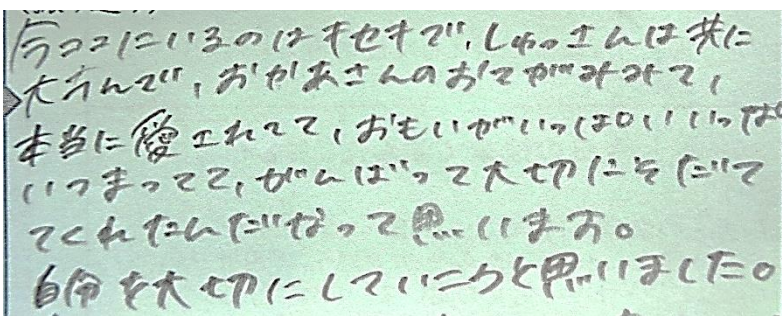 今ココにいるのはキセキで、しゅっさんは共に
大へんで、おかあさんのおてがみみて、
本当に愛されてて、おもいがいっぱいいいっぱ
いつまってて、がんばって大切にそだて
てくれたんだなって思います。
自分を大切にしていこうと思いました。